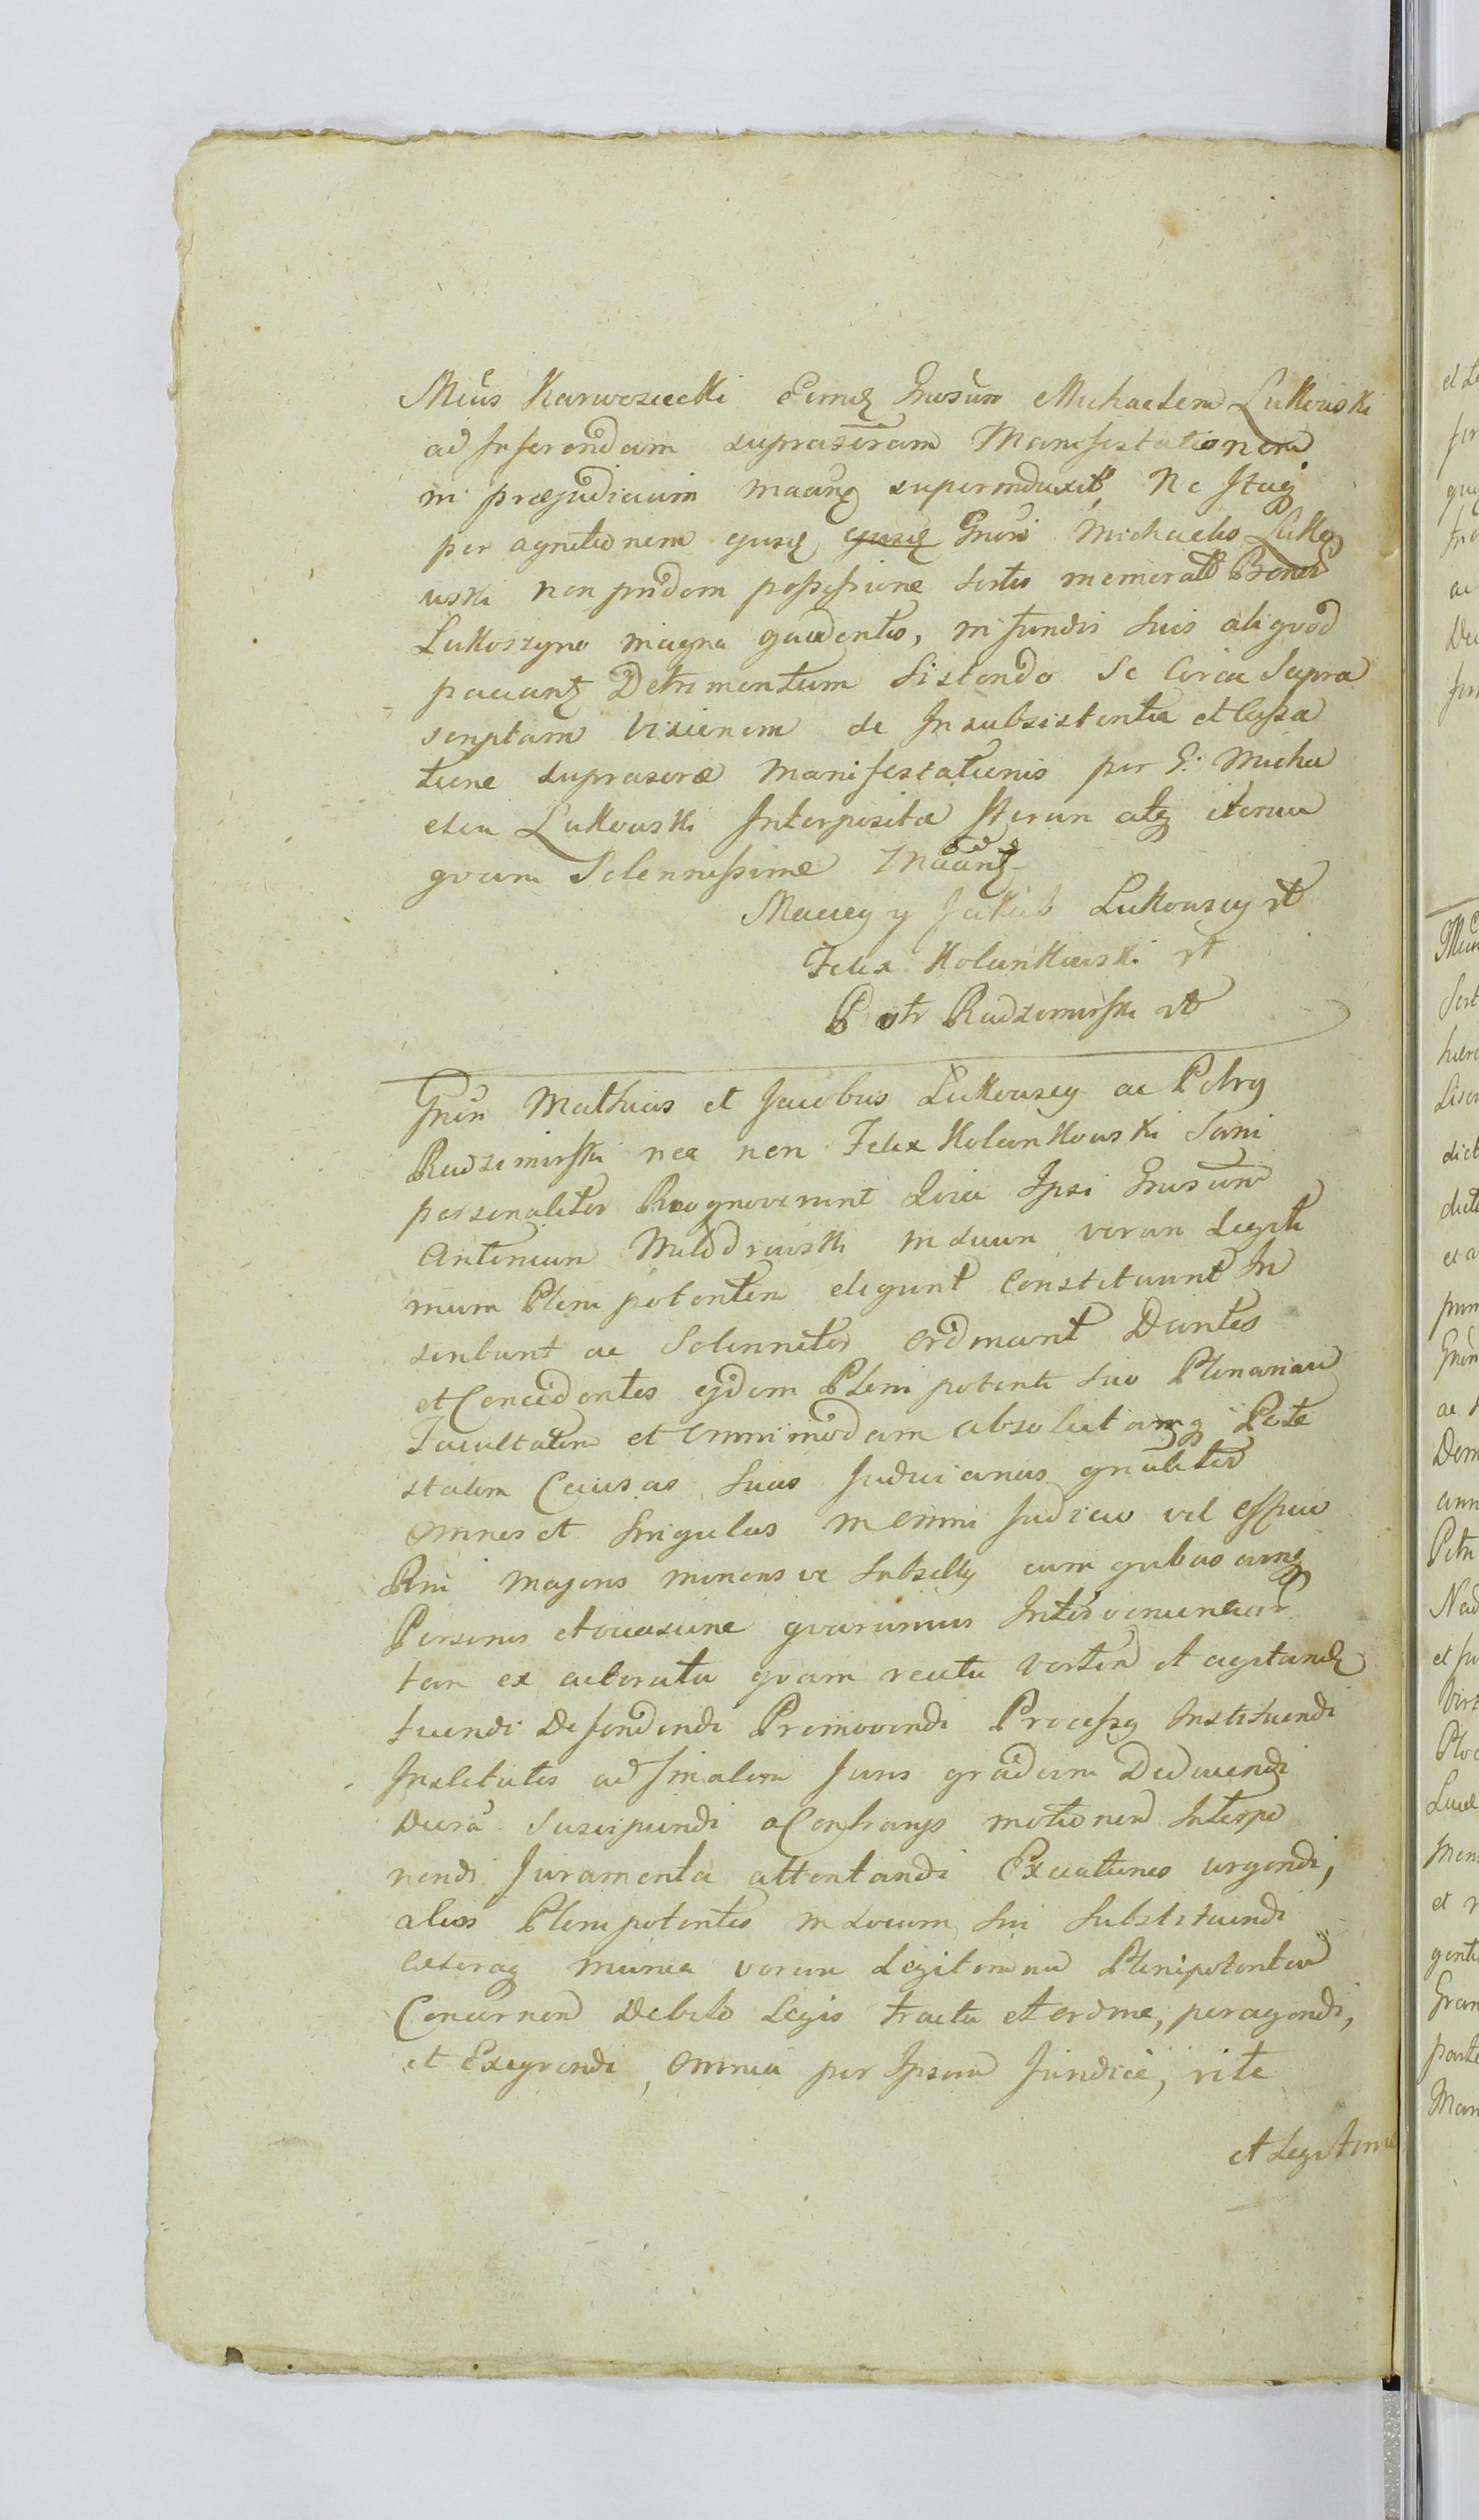 Mcus Karwosiecki Eumq Gnosum Michaelem Lukowski
ad Inferendam suprascram Manifestationem
in præjudicium maang superinduxit, Ne Itaq
per agnitionem ejusq ejusq Gnosi Michaelis Luko
wski non pridem possessione sortis memorat Bonor
Lukoszyno magna gaudentis, in fundis suis aliquod
paciant Detrimentum Sistendo Se Circa Supra
scriptam Visionem de Insubsistentia et Cassa
tione suprascræ Manifestationis per G. Micha
elem Lukowski Interposita Iterum atq iterum
quam Solennissime Maant
Maciey y Jakub Lukowscy
Felix Kolankowski
Piotr Radzimirski
Gnosi Mathias et Jacobus Lukowscy ac Petrg
Radzimirski nec non Felix Kolankowski Sani
personaliter Recognoverunt Quia Ipsi Gnosum
Antonium Modrowski in suum verum Legiti
mum Plenipotentem eligunt Constituunt In
scribunt ac Solenniter Ordinant Dantes
et Concedentes ejdem Plenipotenti suo Plenariam
Facultatem et Omnimodam absolutamq Pote
statem Causas Suas Judicianas gnaliter
Omnes et Singulas in Omni Judicio vel Officio
Rni majoris minoris ve Subselly cum quibus cunq
Personis et occasione quarumvis Inter venienciar
tam ex actoratu quam reatu verten et agitand
tuendi Defendendi Promovendi Processg Instituendi
Institutis ad finalem Juris gradum Deducendi
Decra Suscipiendi a Contraryis motionem Interpo
nendi Juramenta attentandi Exēcutiones urgendi,
alios Plenipotentes in Locum Sui Substituendi
Cæteraq munia verum Legitimum Plenipotentem
Concernen Debito Legis tractu et ordine, peragendi,
et Exequendi, Omnia per Ipsum Juridice, rite
et Legitime